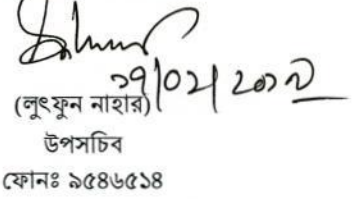 ২৭/০২/২০১৯
(লুৎফুন নাহার)
উপসচিব
ফোনঃ ৯৫৪৬৫১৪